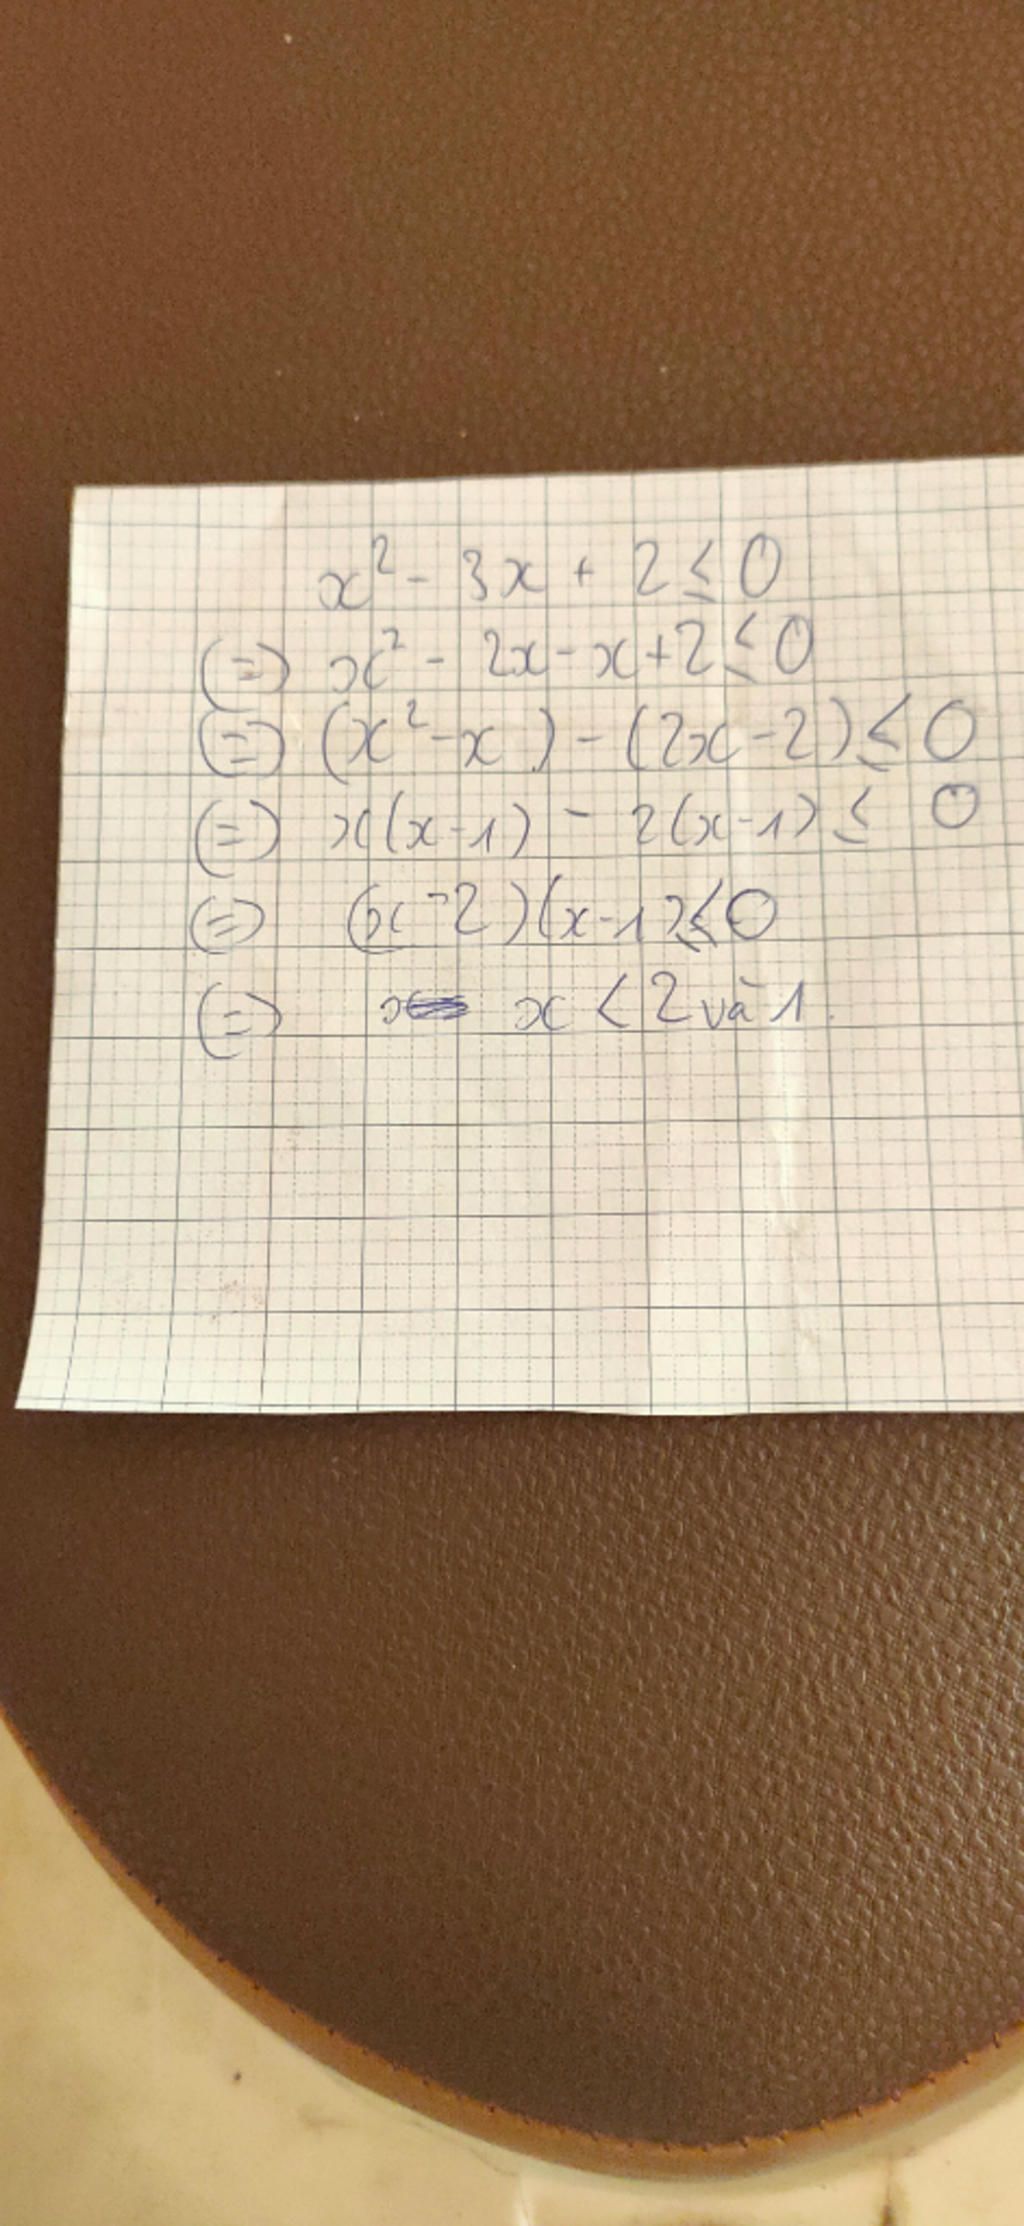 x² - 3x + 2 ≤ 0
(=) x² - 2x - x + 2 ≤ 0
(=) (x² - x) - (2x - 2) ≤ 0
(=) x(x - 1) - 2(x - 1) ≤ 0
(=) (x - 2)(x - 1) ≤ 0
(=) x < 2 và 1.